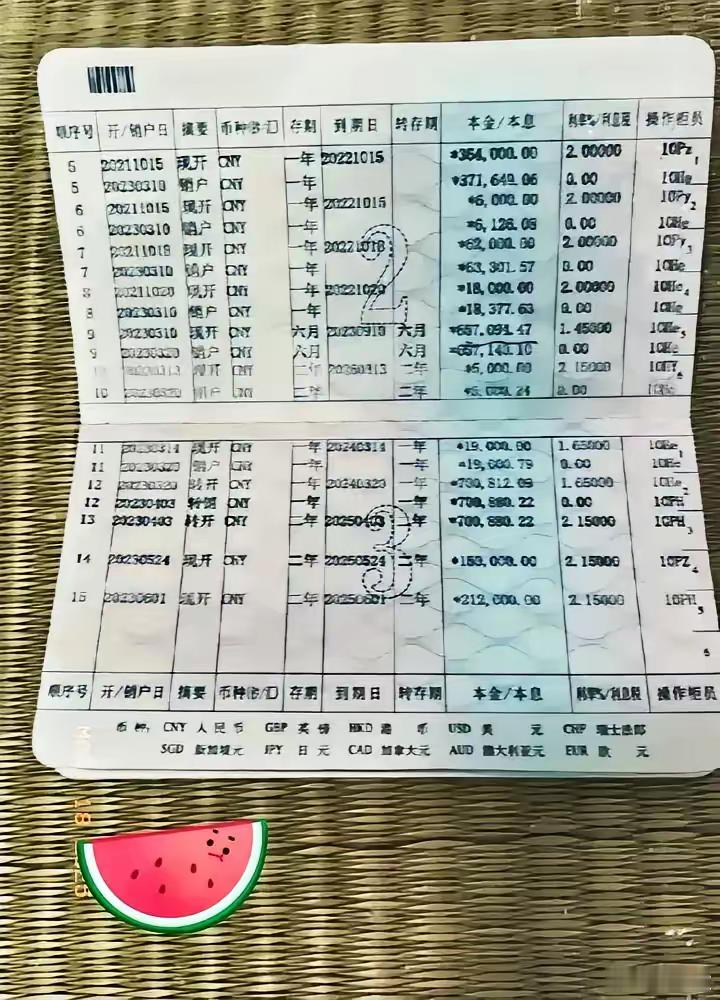 顺序号 开/销户日 摘要 币种 存期 到期日 转存期 本金/本息 利率%/利息税 操作柜员
5 20211015 现开 CNY 一年 20221015 *364,000.00 2.00000
5 20230310 销户 CNY 一年 *371,649.06 0.00
6 20211015 现开 CNY 一年 20221015 *6,000.00 2.00000
6 20230310 销户 CNY 一年 *6,126.08 0.00
7 20211018 现开 CNY 一年 20221018 *62,000.00 2.00000
7 20230310 销户 CNY 一年 *63,301.57 0.00
8 20211020 现开 CNY 一年 20221020 *18,000.00 2.00000
8 20230310 销户 CNY 一年 *18,377.63 0.00
9 20230310 现开 CNY 六月 20230910 六月 *657,094.47 1.45000
9 20230320 销户 CNY 六月 六月 0.00
CNY 二年 二年 *5,000.00 2.15000
10 20230320 销户 CNY 二年 二年 0.00
11 20230314 现开 CNY 一年 20240314 一年 *19,000.00 1.65000
11 20230320 销户 CNY 一年 一年 0.00
12 20230320 转开 CNY 一年 20240320 一年 1.65000
12 20230403 转销 CNY 一年 一年 0.00
13 20230403 转开 CNY 二年 20250403 二年 2.15000
14 20230524 现开 CNY 二年 20250524 二年 2.15000
15 20230601 现开 CNY 二年 20250601 二年 *212,000.00 2.15000
顺序号 开/销户日 摘要 币种 存期 到期日 转存期 本金/本息 利率%/利息税 操作柜员
币种: CNY 人民币 GBP 英镑 HKD 港币 USD 美元 CHF 瑞士法郎
SGD 新加坡元 JPY 日元 CAD 加拿大元 AUD 澳大利亚元 EUR 欧元